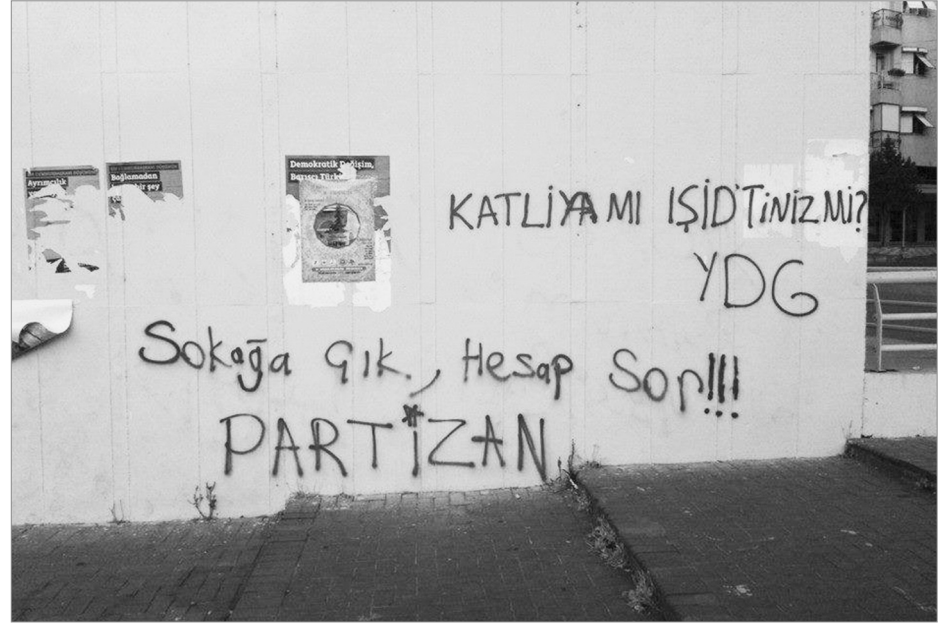 Ayrımcılık
Bağlamadan
bir şey
Demokratik Değişim,
Barışçı Türk
KATLİYAMI IŞİD'TiNiZMi?
YDG
Sokağa Çık., Hesap Sor!!!
PARTİZAN